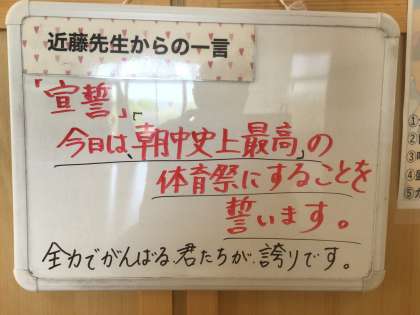 近藤先生からの一言
「宣誓」
今日は、「朝中史上最高」の
体育祭にすることを
誓います。
全力でがんばる君たちが、誇りです。
①
②
③
④
⑤